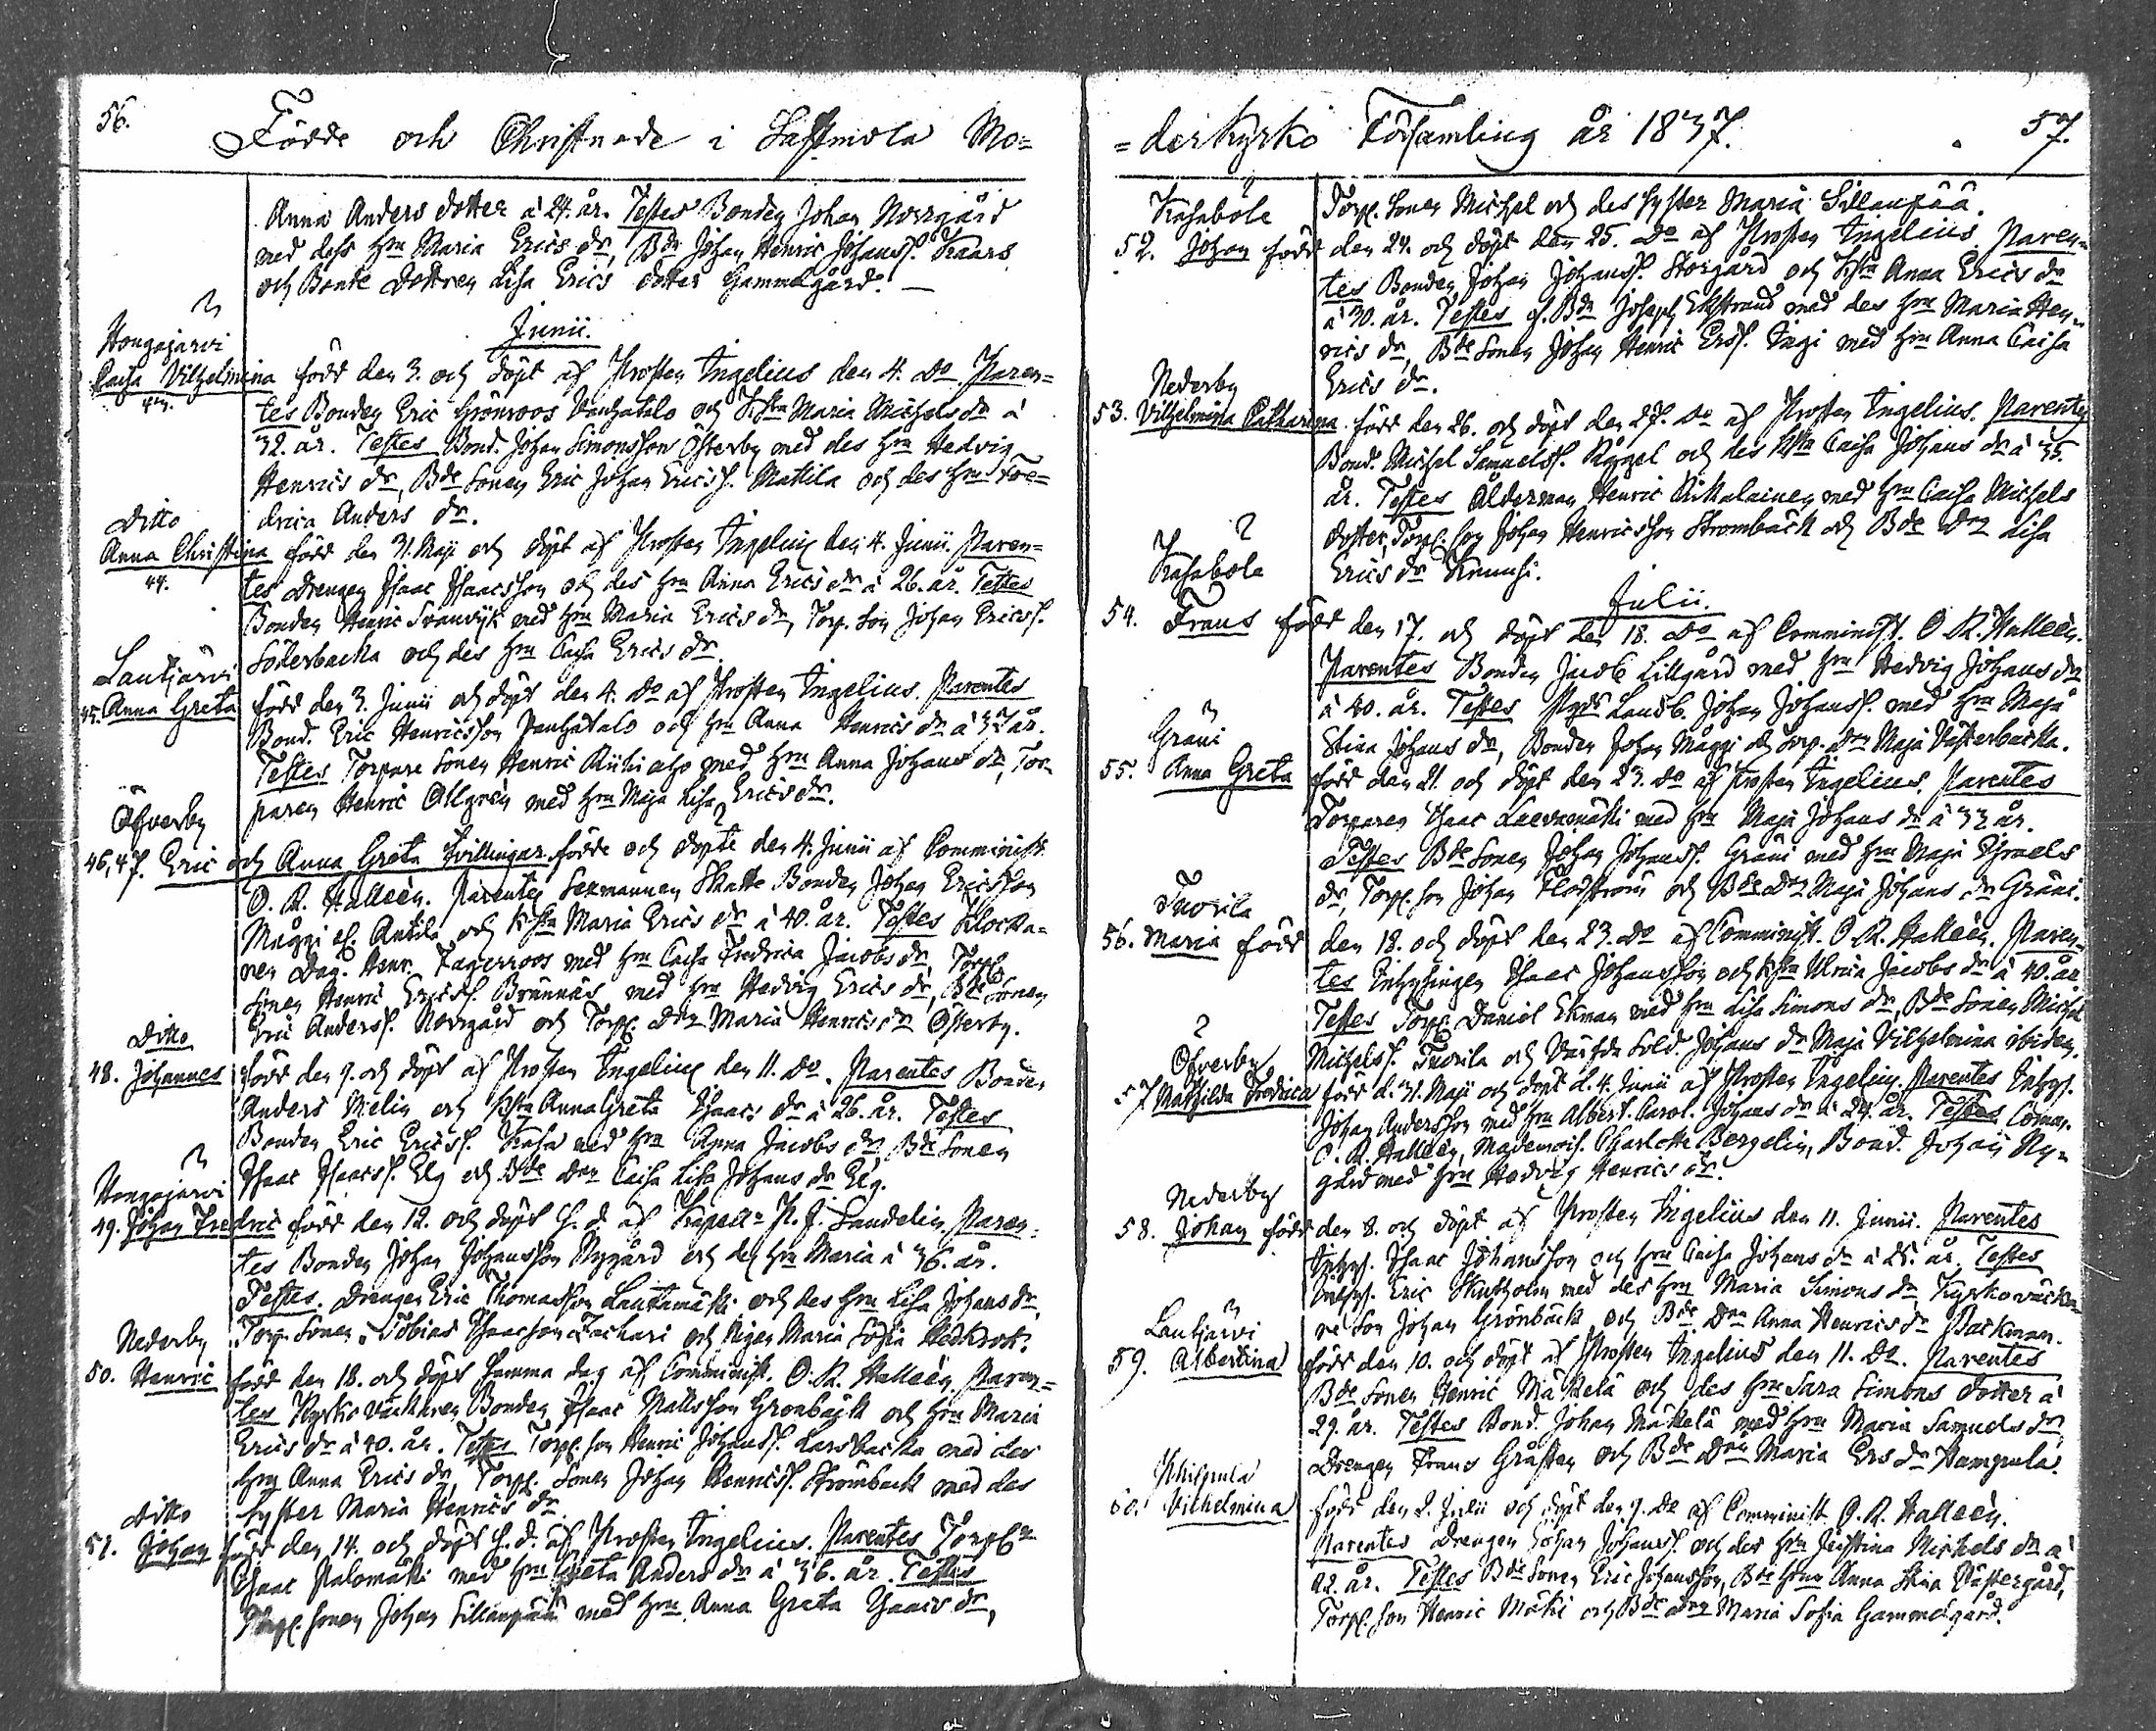 56.
Födde och Christnade i Lappmola Mo=
Anna Anders dotter á 24. år. Testes Bonden Johan Norrgård
med dess hru Maria Erics dr, Bdr Johan Henric Johanss. Kaars
och Bonde dottren Lisa Erics dotter Gammelgård. —
Junii.
Hongajärvi
Caisa Vilhelmina född den 3. och döpt af Prosten Ingelius den 4. do Paren=
43.
tes Bonden Eric Grönroos Vanhatalo och Hstr Maria Michels dr á
32. år. Testes Bond. Johan Simonsson Österby med des hru Hedvig
Henrics dr, Bde Sonen Eric Johan Ericss. Mattila och des hru Fre=
drica Anders dr.
Ditto
Anna Christina född den 31. Maji och döpt af Prosten Ingelius den 4. Junii. Paren=
44.
tes Drengen Isaac Isaacsson och des hru Anna Erics dr á 26. år. Testes
Bonden Henric Svanvik med hru Maria Erics dr, Torp. Son Johan Ericss.
Söderbacka och des hru Caisa Erics dr
Lautjärvi
45. Anna Greta född den 3. Junii och döpt den 4. do af Prosten Ingelius. Parentes
Bond. Eric Henricsson Vanhatalo och hru Anna Henrics dr á 32 år.
Testes Torpare Sonen Henric Riihiaho med hru Anna Johans dr, Tor
paren Henric Allgren med hru Maja Lisa Erics dr.
Öfverby
46, 47. Eric och Anna Greta Tvillingar födde och döpte den 4. Junii af Comminist.
O. R. Halleen. Parentes Sexmannen Skatte Bonden Johan Ericsson
Måggi el. Antila och Hstr Maria Erics dr á 40. år. Testes Klocka=
ren Dav. Henr. Fagerroos med hru Caisa Fredrica Jacobs dr, Torp.
Sonen Henric Ericss. Brännäs med hru Hedvig Erics dr, Bde Sonen
Eric Anderss. Norrgård och Torp. dr Maria Henrics dr Österby.
Ditto
48. Johannes född den 9. och döpt af Prosten Ingelius den 11. do. Parentes Bonden
Anders Melin och Hstr Anna Greta Isaacs dr á 26. år. Testes
Bonden Eric Ericss. Kasa med hru Anna Jacobs dr, Bde Sonen
Isaac Isaacss. Elg och Bde dr Caisa Lisa Johans dr Elg.
Hongajärvi
49. Johan Fredric född den 12. och döpt s. d. af Kapell. P. J. Sandelin. Paren=
tes Bonden Johan Johansson Nygård och des hru Maria á 36. år.
Testes. Drengen Eric Thomasson Lautamäki och des hru Lisa Johans dr,
Torp. Sonen Tobias Isaacson Zachari och Pigan Maria Sofia
Nederby
50. Henric född den 18. och döpt samma dag af Comminist. O. R. Halleen. Paren=
tes Kyrkoväktaren Bonden Isaac Mattsson Grönback och hru Maria
Erics dr á 40. år. Testes Torp. son Henric Johanss. Larsbacka med des
hru Anna Erics dr, Torp. Sonen Johan Henricss. Strömback med des
Syster Maria Henrics dr
Ditto
51. Johan född den 14. och döpt s. d. af Prosten Ingelius. Parentes Torp.
Isaac Palomäki med hru Greta Anders dr á 36. år. Testes
Torp. sonen Johan Sillanpää med hru Anna Greta Isaacs dr,
=derkyrko Församling år 1837. 57.
Kasaböle
Torp. Sonen Michel och des Syster Maria Sillanpää.
52. Johan född den 24. och döpt den 25. do af Prosten Ingelius. Paren=
tes Bonden Johan Johanss. Storgård och Hstr Anna Erics dr
á 30. år. Testes f. Bdn Joseph Ekstrand med des hru Maria Hen=
rics dr, Bde Sonen Johan Henric Erss. Ingi med hru Anna Caisa
Erics dr.
Nederby
53. Vilhelmina Catharina född den 26. och döpt den 27. do af Prosten Ingelius. Parentes
Bond. Michel Samuelss. och des Hstr Caisa Johans dr á 35.
år. Testes Ålderman Henric Rikalainen med hru Caisa Michels
dotter, Torp. son Johan Henricsson Strömback och Bde dr Lisa
Erics dr Kruusi.
Kasaböle
Julii.
54. Frans född den 17. och döpt den 18. do af Comminist. O. R. Halleen.
Parentes Bonden Jacob Lillgård med hru Hedvig Johans dr
á 40. år. Testes Landb. Johan Johanss. med hru Maja
Stina Johans dr, Bonden Johan Måggi och Torp. dr Maja Vesterbacka.
Gräni
55. Anna Greta född den 21. och döpt den 23. do af Prosten Ingelius. Parentes
Torparen Isaac med hru Maja Johans dr á 32 år.
Testes Bde Sonen Johan Johanss. Gräni med hru Maja Israels
dr, Torp. son Johan Flodström och Bde dr Maja Johans dr Gräni.
Tuorila
56. Maria född den 18. och döpt den 23. do af Comminist. O. R. Halleen. Paren=
tes Inhysingen Isaac Johansson och Hstr Ulrica Jacobs dr á 40. år
Testes Torp. Daniel Ekman med hru Lisa Simons dr, Bde Sonen Michel
Michelss. Tuorila och Sold. Johans dr Maja Vilhelmina ibidem.
Öfverby
57 Mathilda Fredrica född d. 31. Maji och döpt d. 4. Junii af Prosten Ingelius. Parentes Inhys.
Johan Andersson med hru Albert. Carol. Johans dr á 24. år. Testes Commin.
O. R. Halleen, Mademois. Charlotte Bergelin, Bond. Johan Ny=
gård med hru Hedvig Henrics dr.
Nederby
58. Johan född den 8. och döpt af Prosten Ingelius den 11. Junii. Parentes
Inhys. Isaac Johansson och hru Caisa Johans dr á 25. år. Testes
Inhys. Eric Skutholm med des hru Maria Simons dr, Kyrkoväkta
re Son Johan Grönbäck och Bde dr Anna Henrics dr Backman.
Lautjärvi
59. Albertina född den 10. och döpt af Prosten Ingelius den 11. do. Parentes
Bde Sonen Henric Mäkelä och des hru Sara Simons dotter á
29. år. Testes Bond. Johan Mäkelä med hru Maria Samuels dr,
Drengen Frans Gråsten och Bde dr Maria Ers dr Pampula.
Filppula
60. Vilhelmina född den 2. Julii och döpt den 9. do af Comminist. O. R. Halleen.
Parentes Drengen Johan Johanss. och des hru Justina Michels dr á
42. år. Testes Bde Sonen Eric Johansson, Bde hru Anna Stina Vestergård,
Torp. son Henric Mäki och Bde dr Maria Sofia Gammelgård.